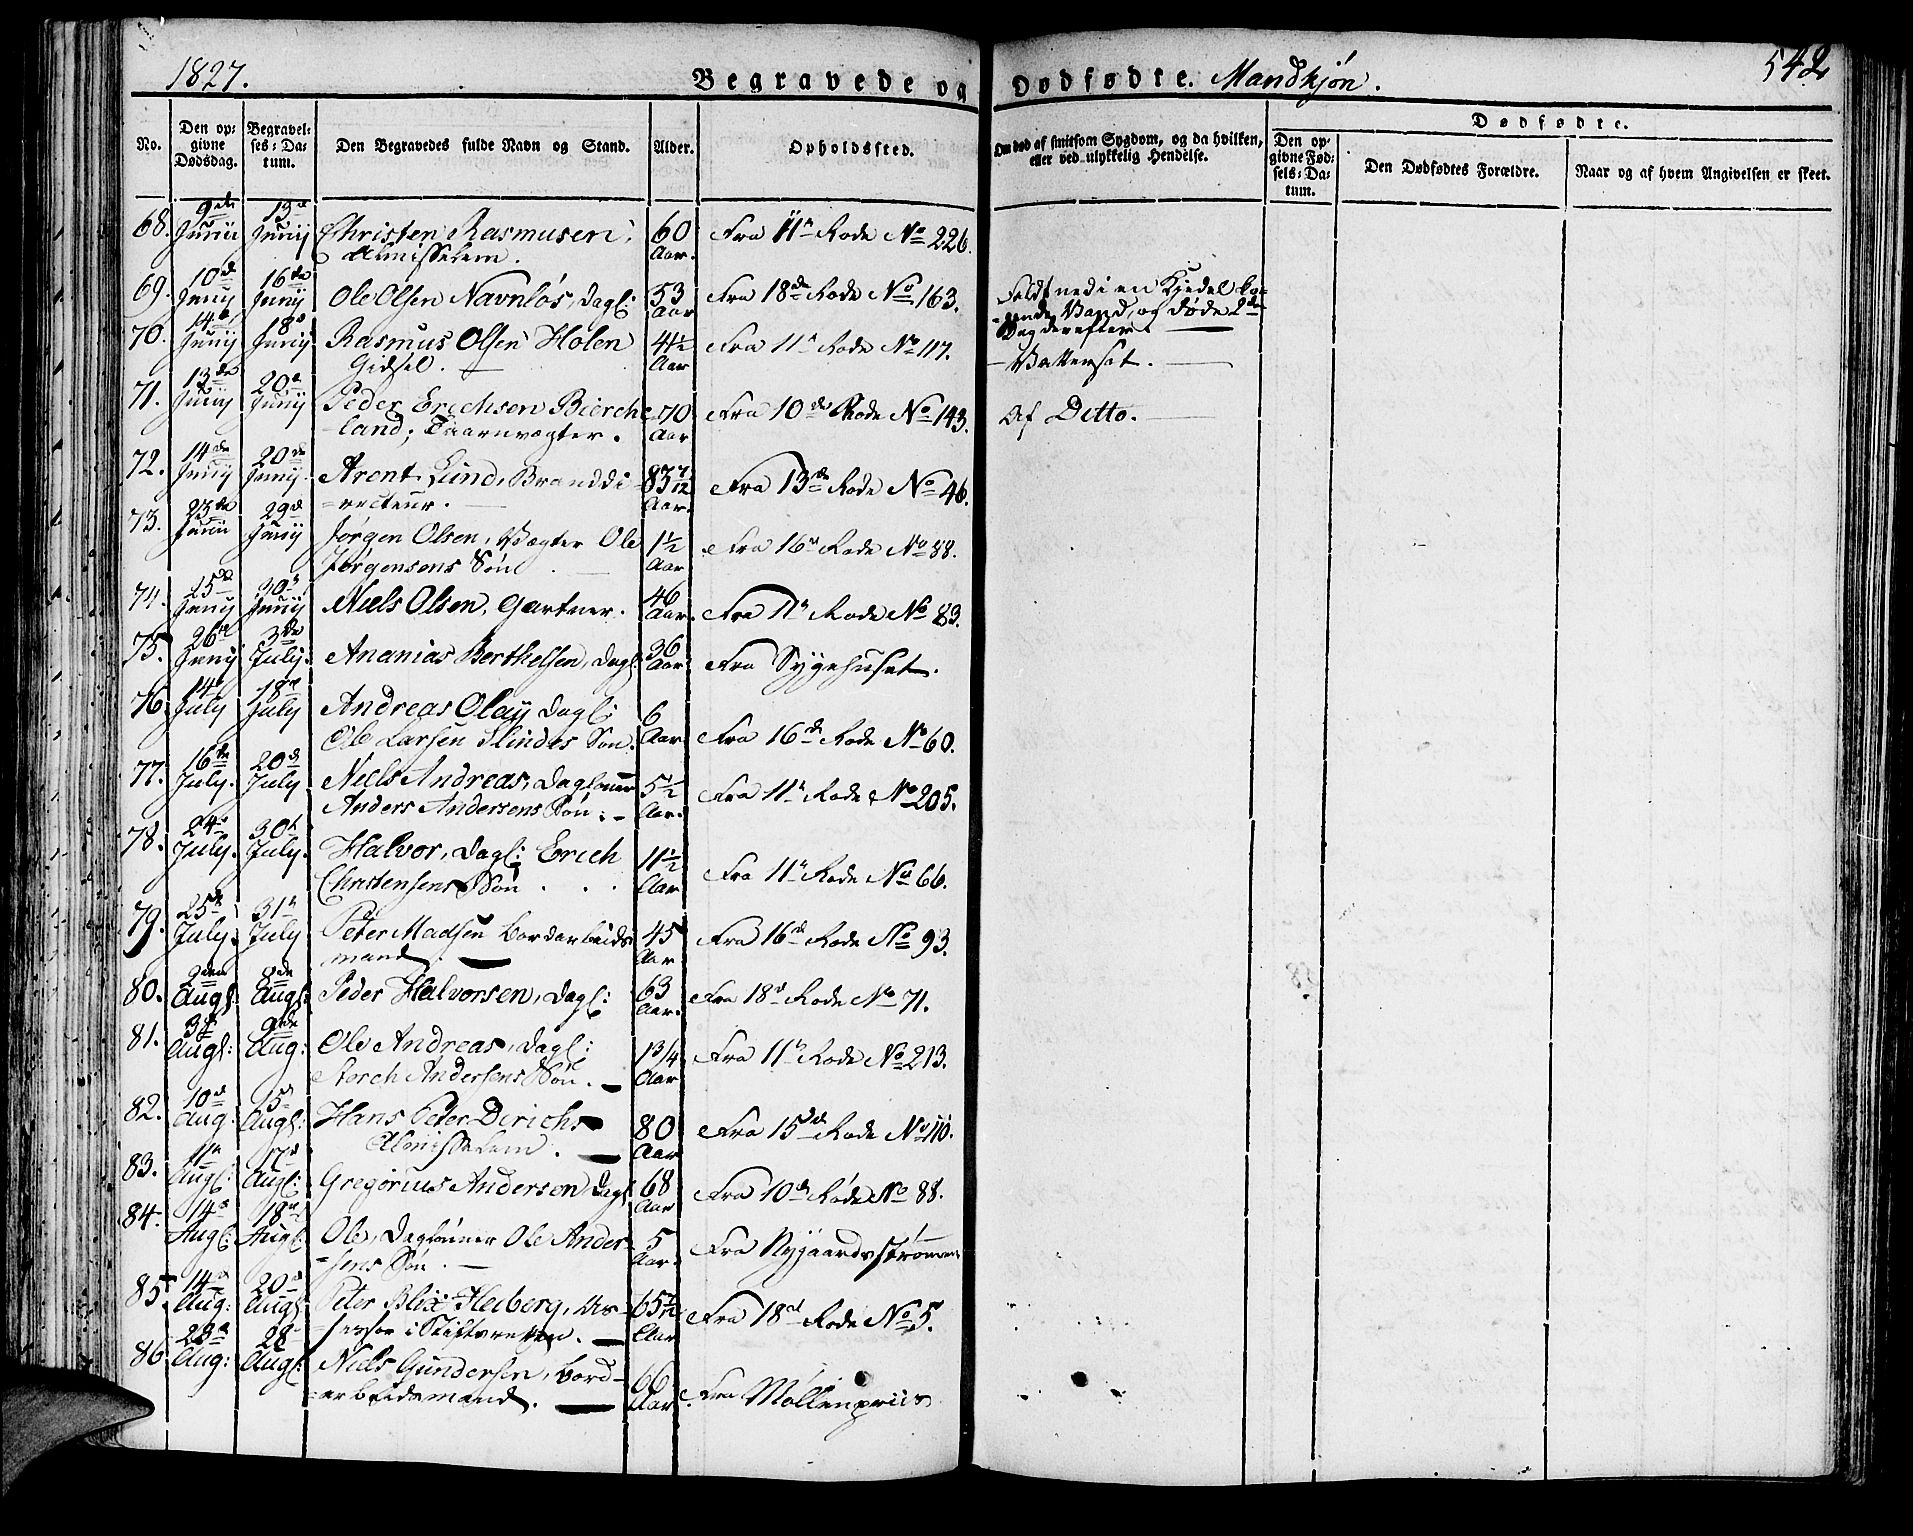 1827.
Begravede og Dødfødte. Mandkjøn.
542
No.
Den opgivne Dødsdag.
Begravelses-Datum.
Den Begravedes fulde Navn og Stand.
Alder.
Opholdssted.
Om død af smitsom Sygdom, og da hvilken, eller ved ulykkelig Hendelse.
Dødfødte.
Den opgivne Fødsels-Datum.
Den Dødfødtes Forældre.
Naar og af hvem Angivelsen er skeet.
68. 9de Junii 13de Junij Christen Rasmusen, 60 Aar. Fra 11te Rode No 226.
Almisselem.
69. 10de Junij 16de Junij Ole Olsen Navnløs, Dagl: 53 Aar Fra 18de Rode No 163. Faldt ned i en Kjedel ko-
-gende Vand, og døde 2de
Dag derefter.
70. 14de Junij 18de Junij Rasmus Olsen Holen 4½ Aar Fra 11te Rode No 117. Vattersot.
Gidsel.
71. 13de Junij 20de Junij Peder Erichsen Bierch- 70 Aar Fra 10de Rode No 143. Af Ditto.
land, Taarnvægter.
72. 14de Junij 20de Junij Arent Lund, Branddi- 83 7/12 Aar. Fra 13de Rode No 46.
=recteur.
73. 23de Junii 29de Junij Jørgen Olsen, Vægter Ole 1½ Aar Fra 16de Rode No 88.
Jørgensens Søn
74. 25de Junij 30te Junij Niels Olsen, Gartner. 46 Aar. Fra 11te Rode No 83.
75. 26de Junij 3de July. Ananias Berthelsen, Dagl: 36 Aar Fra Sygehuset.
76. 14de July 18de July Andreas Olaij Dagl: 6 Aar Fra 16de Rode No 60.
Ole Larsen Slindes Søn.
77. 16de July. 20de July Niels Andreas, Dagløner 5½ Aar. Fra 11te Rode No 205.
Anders Andersens Søn.
78. 24de July. 30te July. Halvor, Dagl: Erich 11½ Aar Fra 11te Rode No 66.
Christensens Søn
79. 25de July. 31te July Peter Madsen Bordarbeids- 45 Aar Fra 16de Rode No 93.
mand.
80. 2den Augs: 8de Augs: Peder Halvorsen, Dagl: 63 Aar. Fra 18de Rode No 71.
81. 3de Augs: 9de Aug: Ole Andreas, Dagl: 1 3/4 Aar Fra 11te Rode No 213.
Storch Andersens Søn.
82. 10de Aug: 15de Augs: Hans Peter Derichs 80 Aar Fra 15de Rode No 110.
Almisselem.
83. 11te Augs: 17de Augs: Gregorius Andersen, Dagl: 68 Aar Fra 10de Rode No 88.
84. 14de Augs: 18de Augs: Ole, Dagløner Ole Ander- 5 Aar. Fra Nygaardsstrømmen
=sens Søn.
85. 14de Aug: 20de Augs: Peter Blix Heiberg, As- 65 7/12 Aar Fra 18de Rode No 5.
=sessor i Stiftsretten.
86. 23de Aug: 28de Augs: Niels Gundersen, Bord- 66 Aar. Fra Møllenpriis
=arbeidsmand.